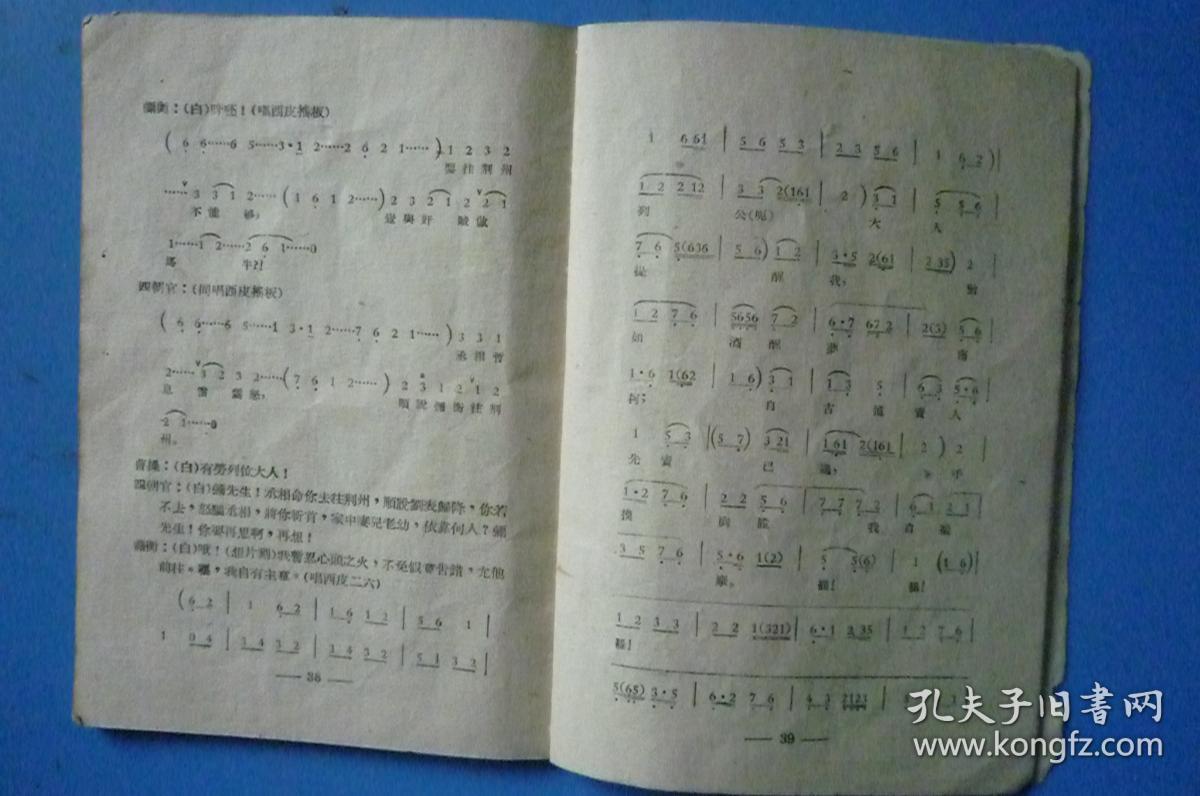 禰衡：(白)呀呸！(唱西皮搖板)
( 6 6……6 5……3·1 2……2 6 2 1…… ) 1 2 3 2
要往荆州
…… 3 3 1 2……( 1 6 1 2……) 2 3 2 1 2 2 1
不能 够， 豈與奸 賊做
1……1 2……2 6 1……0
馬 牛？！
四朝官：(同唱西皮搖板)
( 6 6……6 5……1 3·1 2……7 6 2 1…… ) 3 3 1
丞相暫
2……3 2 3 2……( 7 6 1 2…… ) 2 3 1 2 1 2
息 雷 霆怒， 順說禰衡往荆
2 1……0
州。
曹操：(白)有勞列位大人！
四朝官：(白)禰先生！丞相命你去往荆州，順說劉表歸降，你若
不去，怒惱丞相，將你斬首，家中妻兒老幼，依靠何人？禰
先生！你要再思啊，再想！
禰衡：(白)哦！(想片刻)我暫忍心頭之火，不免假意告諸，允他
前往。嗯，我自有主意。(唱西皮二六)
( 6 2 | 1 6 2 | 1 6 1 2 | 5 6 1 |
1 0 4 | 3 4 3 2 | 3 4 3 2 | 5 1 3 2 |
— 38 —
1 6 61 | 5 6 5 3 | 2 3 5 6 | 1 6 2 ) |
1 2 2 12 | 3 3 2(161 | 2 ) 3 1 | 5 5 6
列 公(呃) 大 人
7 6 5(636 | 5 6 ) 1 2 | 3·5 2(61 | 2 35 ) 2
提 醒 我，
1 2 7 6 | 5656 7 2 | 6·7 67 2 | 2(3) 5 6
如 酒醒 夢 南
1·6 1(62 | 1 6 ) 3 1 | 1 3 5 | 6 3 5·6
柯； 自 古 道 賣 人
1 5 3 |( 5 7 ) 3 21 | 1 61 2(161 | 2 ) 2
先賣 己 過， 手
1·2 7 6 | 2 2 5 6 | 7 7 7 2 | 6 1 2 1
摸 胸膛 我自
3 5 7 6 | 5·6 1(2) | 5 5(6) | 1 (1 6)
1 2 3 3 | 2 2 1(321) | 6·1 2 35 | 1 2 7 6
5(65) 3·5 | 6·2 7 6 | 4 3 2123 |
— 39 —
孔夫子旧書网
www.kongfz.com